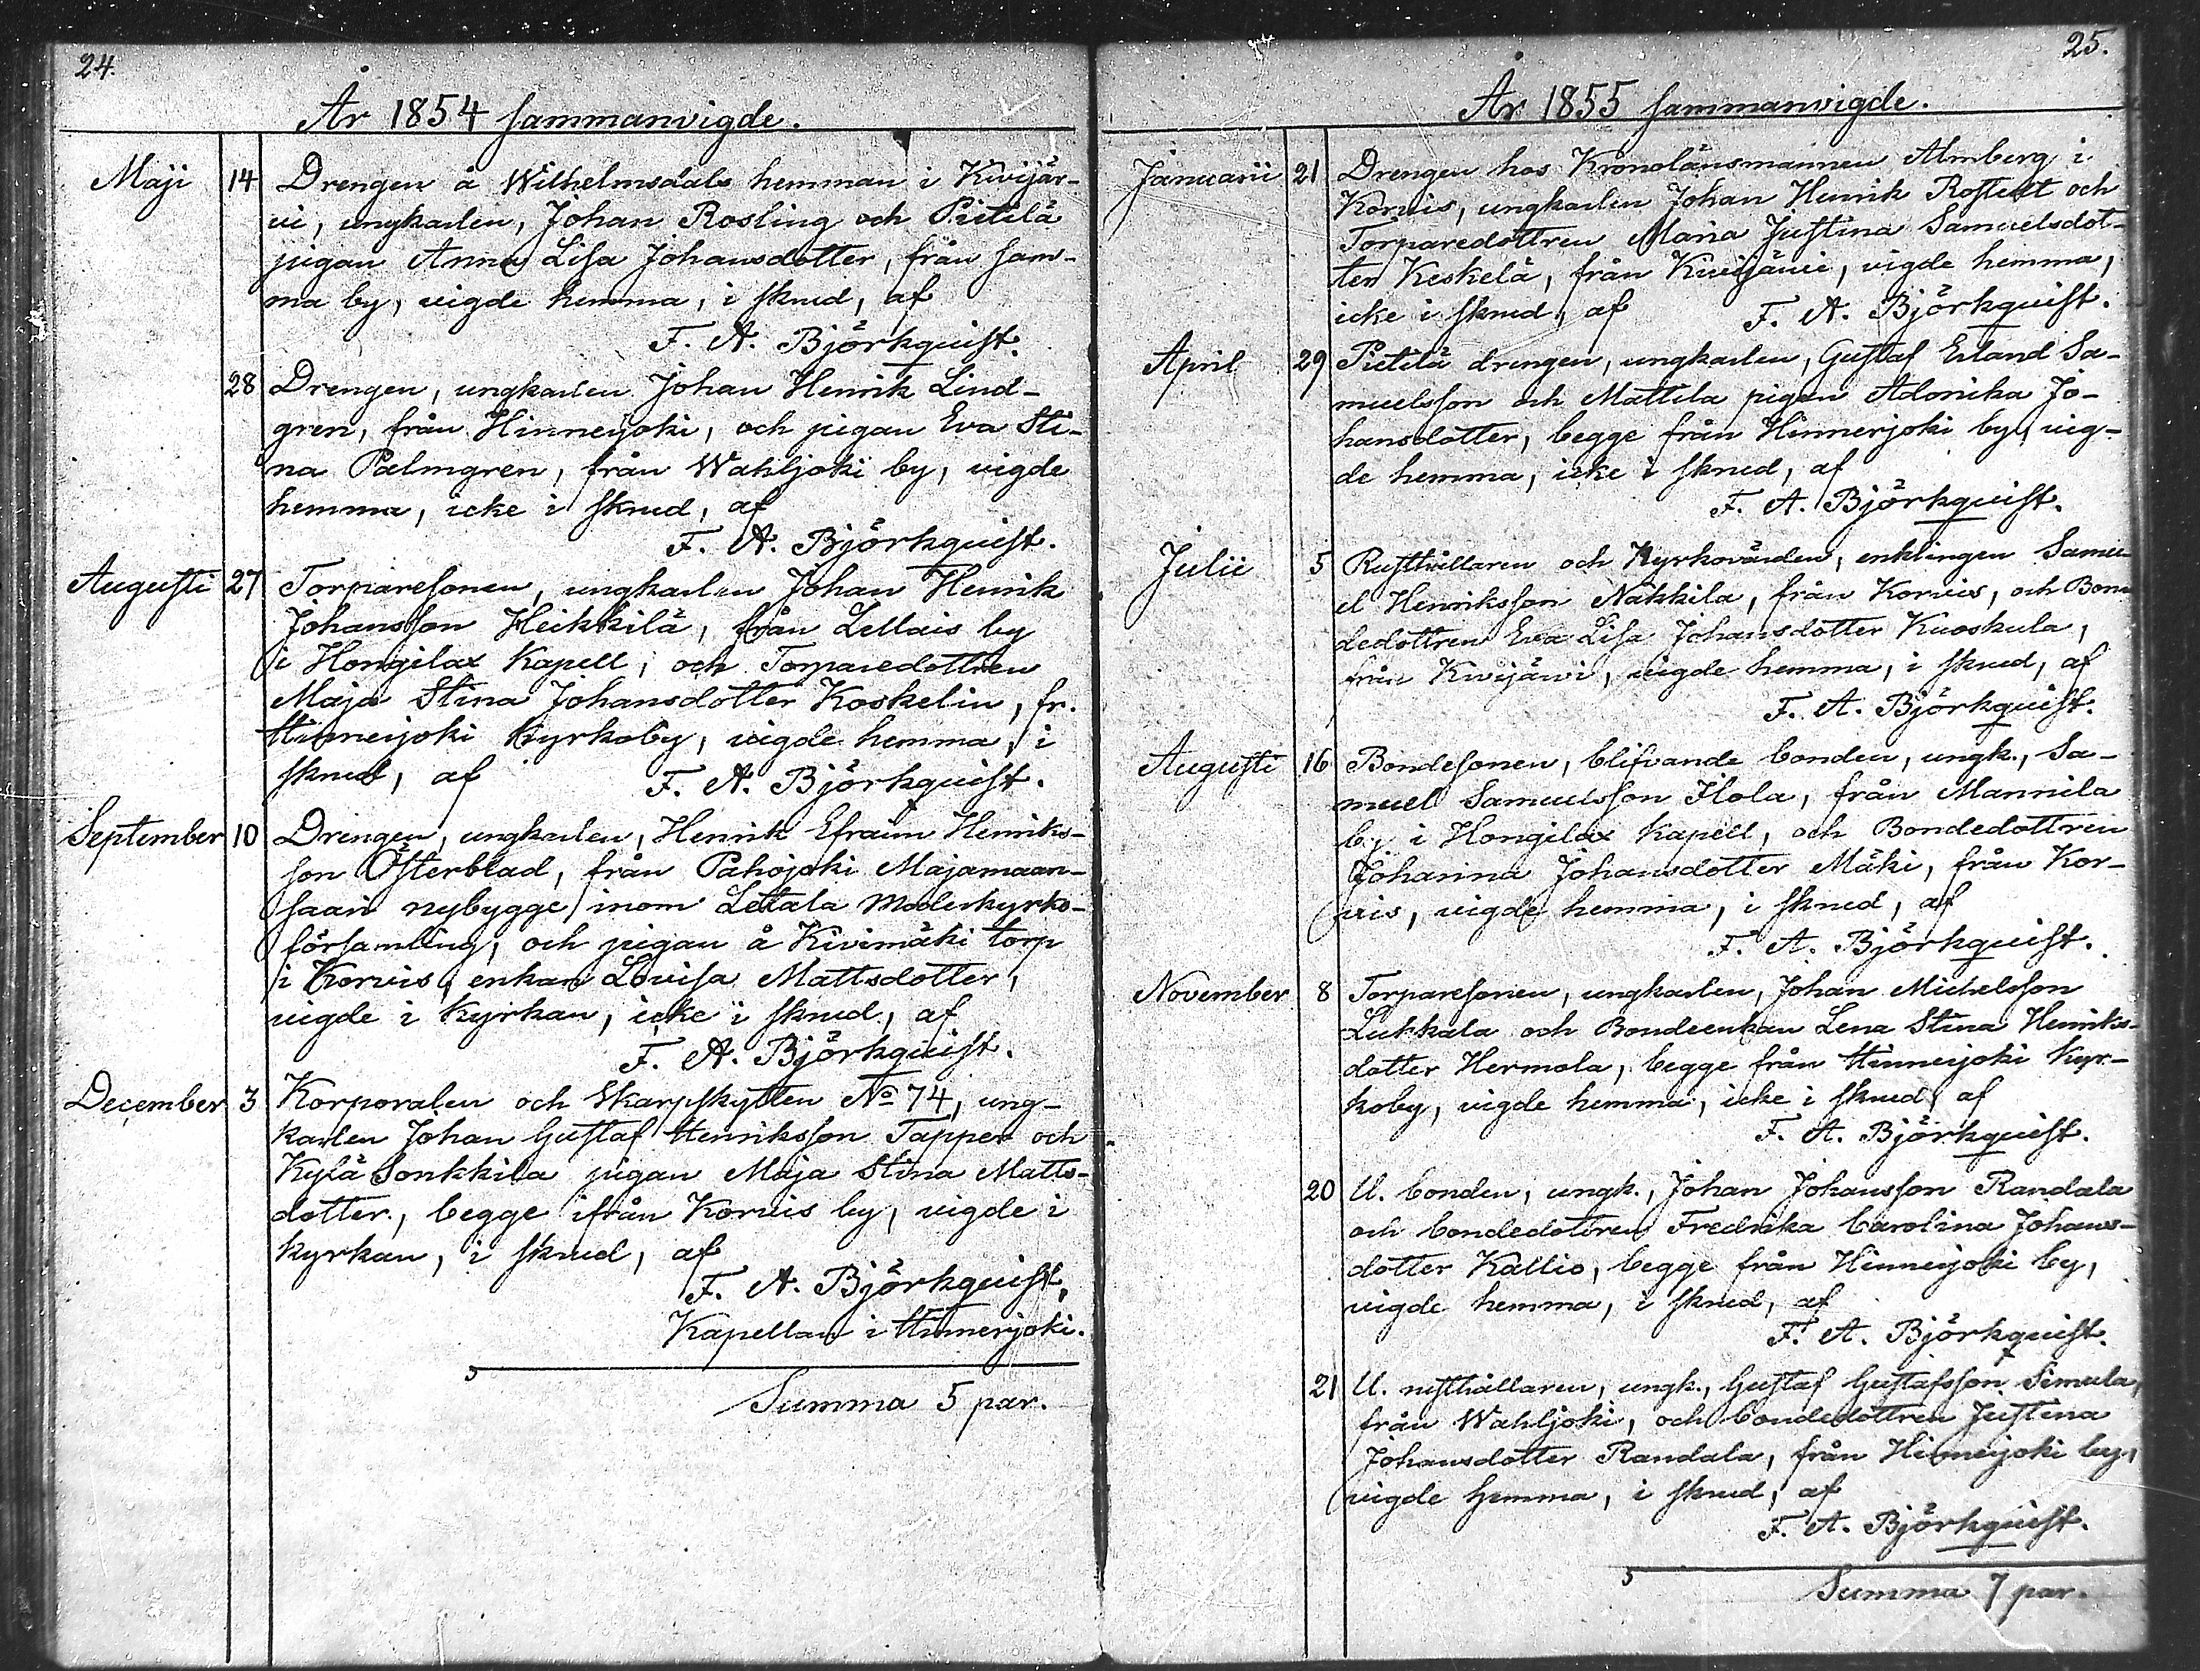 24.
År 1854 sammanvigde.
Maji 14 Drengen å Wilhelmsdals hemman i Kivijär-
vi, ungkarlen, Johan Rosling och Pietilä
pigan Anna Lisa Johansdotter, från sam-
ma by, vigde hemma, i skrud, af
F. A. Björkquist.
28 Drengen, ungkarlen Johan Henrik Lind-
gren, från Hinnerjoki, och pigan Eva Sti-
na Palmgren, från Wahljoki by, vigde
hemma, icke i skrud, af
F. A. Björkquist.
Augusti 27 Torparesonen, ungkarlen Johan Henrik
Johansson Heikkilä, från Lellais by
i Hongilax Kapell, och Torparedottren
Maja Stina Johansdotter Koskelin, fr.
Hinnerjoki Kyrkoby, vigde hemma, i
skrud, af F. A. Björkquist.
September 10 Drengen, ungkarlen, Henrik Efraim Henriks-
son Österblad, från Pahojoki Majamaan-
saari nybygge inom Letala Moderkyrko-
församling, och pigan å Kivimäki torp
i Korvis, enkan Lovisa Mattsdotter,
vigde i Kyrkan, icke i skrud, af
F. A. Björkquist.
December 3 Korporalen och Skarpskytten No 74, ung-
karlen Johan Gustaf Henriksson Tapper och
Kylä Sonkkila pigan Maja Stina Matts-
dotter, begge ifrån Korvis by, vigde i
kyrkan, i skrud, af
F. A. Björkquist,
Kapellan i Hinnerjoki.
Summa 5 par.
25.
År 1855 sammanvigde.
Januarii 21 Drengen hos Kronolänsmannen Almberg i
Korvis, ungkarlen Johan Henrik Rostedt och
Torparedottren Maria Justina Samuelsdot-
ter Keskelä, från Kivijärvi, vigde hemma,
icke i skrud, af F. A. Björkquist.
April 29 Pietilä drengen, ungkarlen, Gustaf Erland Sa-
muelsson och Mattila pigan Adonika Jo-
hansdotter, begge från Hinnerjoki by, vig-
de hemma, icke i skrud, af
F. A. Björkquist.
Julii 5 Rusthållaren och Kyrkovärden, enklingen Samu-
el Henriksson Näkkilä, från Korvis, och Bon-
dedottren Eva Lisa Johansdotter Kuoskula,
från Kivijärvi, vigde hemma, i skrud, af
F. A. Björkquist.
Augusti 16 Bondesonen, blifvande bonden, ungk., Sa-
muel Samuelsson Ilola, från Mannila
by i Hongilax Kapell, och Bondedottren
Johanna Johansdotter Mäki, från Kor-
vis, vigde hemma, i skrud, af
F. A. Björkquist.
November 8 Torparesonen, ungkarlen, Johan Michelsson
Lukkala och Bondeenkan Lena Stina Henriks-
dotter Hermola, begge från Hinnerjoki Kyr-
koby, vigde hemma, icke i skrud, af
F. A. Björkquist.
20 U. bonden, ungk., Johan Johansson Randala
och bondedottren Fredrika Carolina Johans-
dotter Kallio, begge från Hinnerjoki by,
vigde hemma, i skrud, af
F. A. Björkquist.
21 U. rusthållaren, ungk., Gustaf Gustafsson Simula,
från Wahljoki, och bondedottren Justina
Johansdotter Randala, från Hinnerjoki by,
vigde hemma, i skrud, af
F. A. Björkquist.
Summa 7 par.